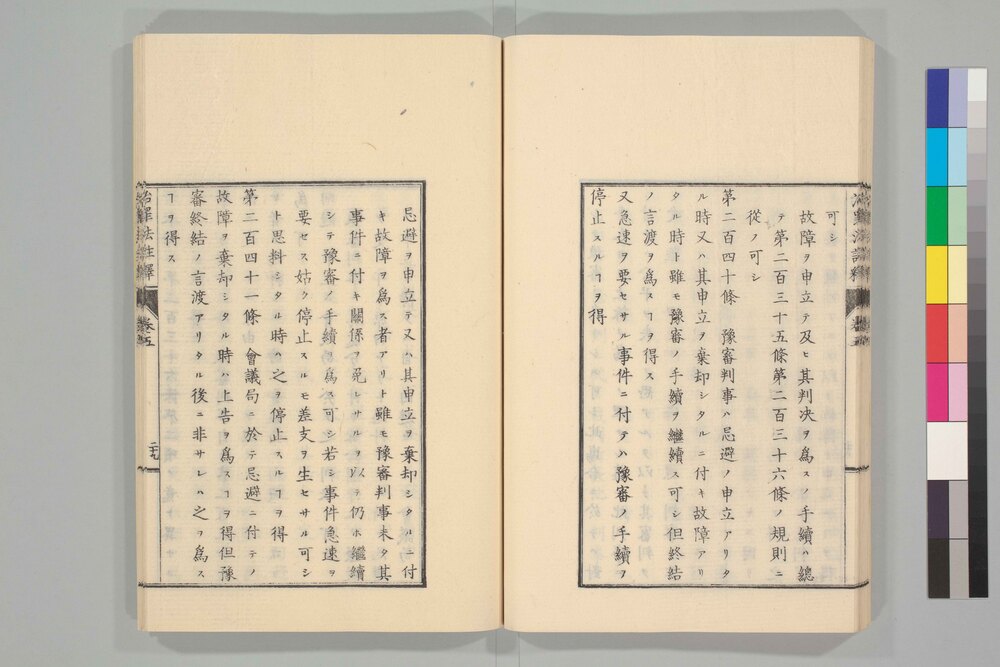 可シ
故障ヲ申立テ及ヒ其判决ヲ爲スノ手續ハ總
テ第二百三十五條第二百三十六條ノ規則ニ
從ノ可シ
第二百四十條 豫審判事ハ忌避ノ申立アリタ
ル時又ハ其申立ヲ棄却シタルニ付キ故障アリ
タル時ト雖モ豫審ノ手續ヲ繼續ス可シ但終結
ノ言渡ヲ爲スヿヲ得ス
又急速ヲ要セサル事件ニ付テハ豫審ノ手續ヲ
停止スルヿヲ得
忌避ヲ申立テ又ハ其申立ヲ棄却シタルニ付
キ故障ヲ爲ス者アリト雖モ豫審判事未タ其
事件ニ付キ關係ヲ免レサルヲ以テ仍ホ繼續
シテ豫審ノ手續ヲ爲ス可シ若シ事件急速ヲ
要セス姑ク停止スルモ差支ヲ生セサル可シ
ト思料シタル時ハ之ヲ停止スルヿヲ得
第二百四十一條 會議局ニ於テ忌避ニ付テノ
故障ヲ棄却シタル時ハ上告ヲ爲スヿヲ得但豫
審終結ノ言渡アリタル後ニ非サレハ之ヲ爲ス
ヿヲ得ス
治罪法註釋 卷五